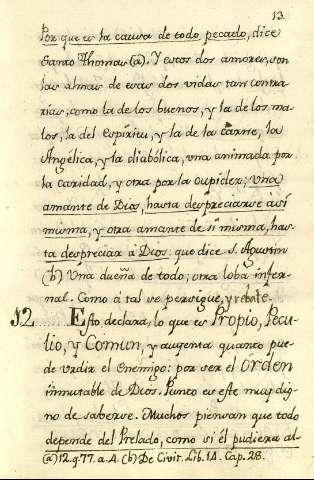 13.
Por que es la causa de todo pecado, dice
Santo Thomas (a). Y estos dos amores, son
las almas de esas dos vidas tan contra-
rias, como la de los buenos, y la de los ma-
los, la del Espiritu, y la de la carne, la
Angélica, y la diabólica, una animada por
la caridad, y otra por la cupidez; Una
amante de Dios, hasta despreciarse así
misma, y otra amante de sí misma, has-
ta despreciar á Dios: que dice S. Agustin
(b) Una dueña de todo; otra loba infer-
nal. Como á tal se persigue, y rebate.
12. Esto declara, lo que es Propio, Pecu-
lio, y Comun, y augenta quanto pue-
de urdir el Enemigo: por ser el orden
inmutable de Dios. Punto es este muy dig-
no de saberse. Muchos piensan que todo
depende del Prelado, como si él pudiera al-
(a) 12. q. 77. a. 4. (b) De Civit. Lib. 14. Cap. 28.